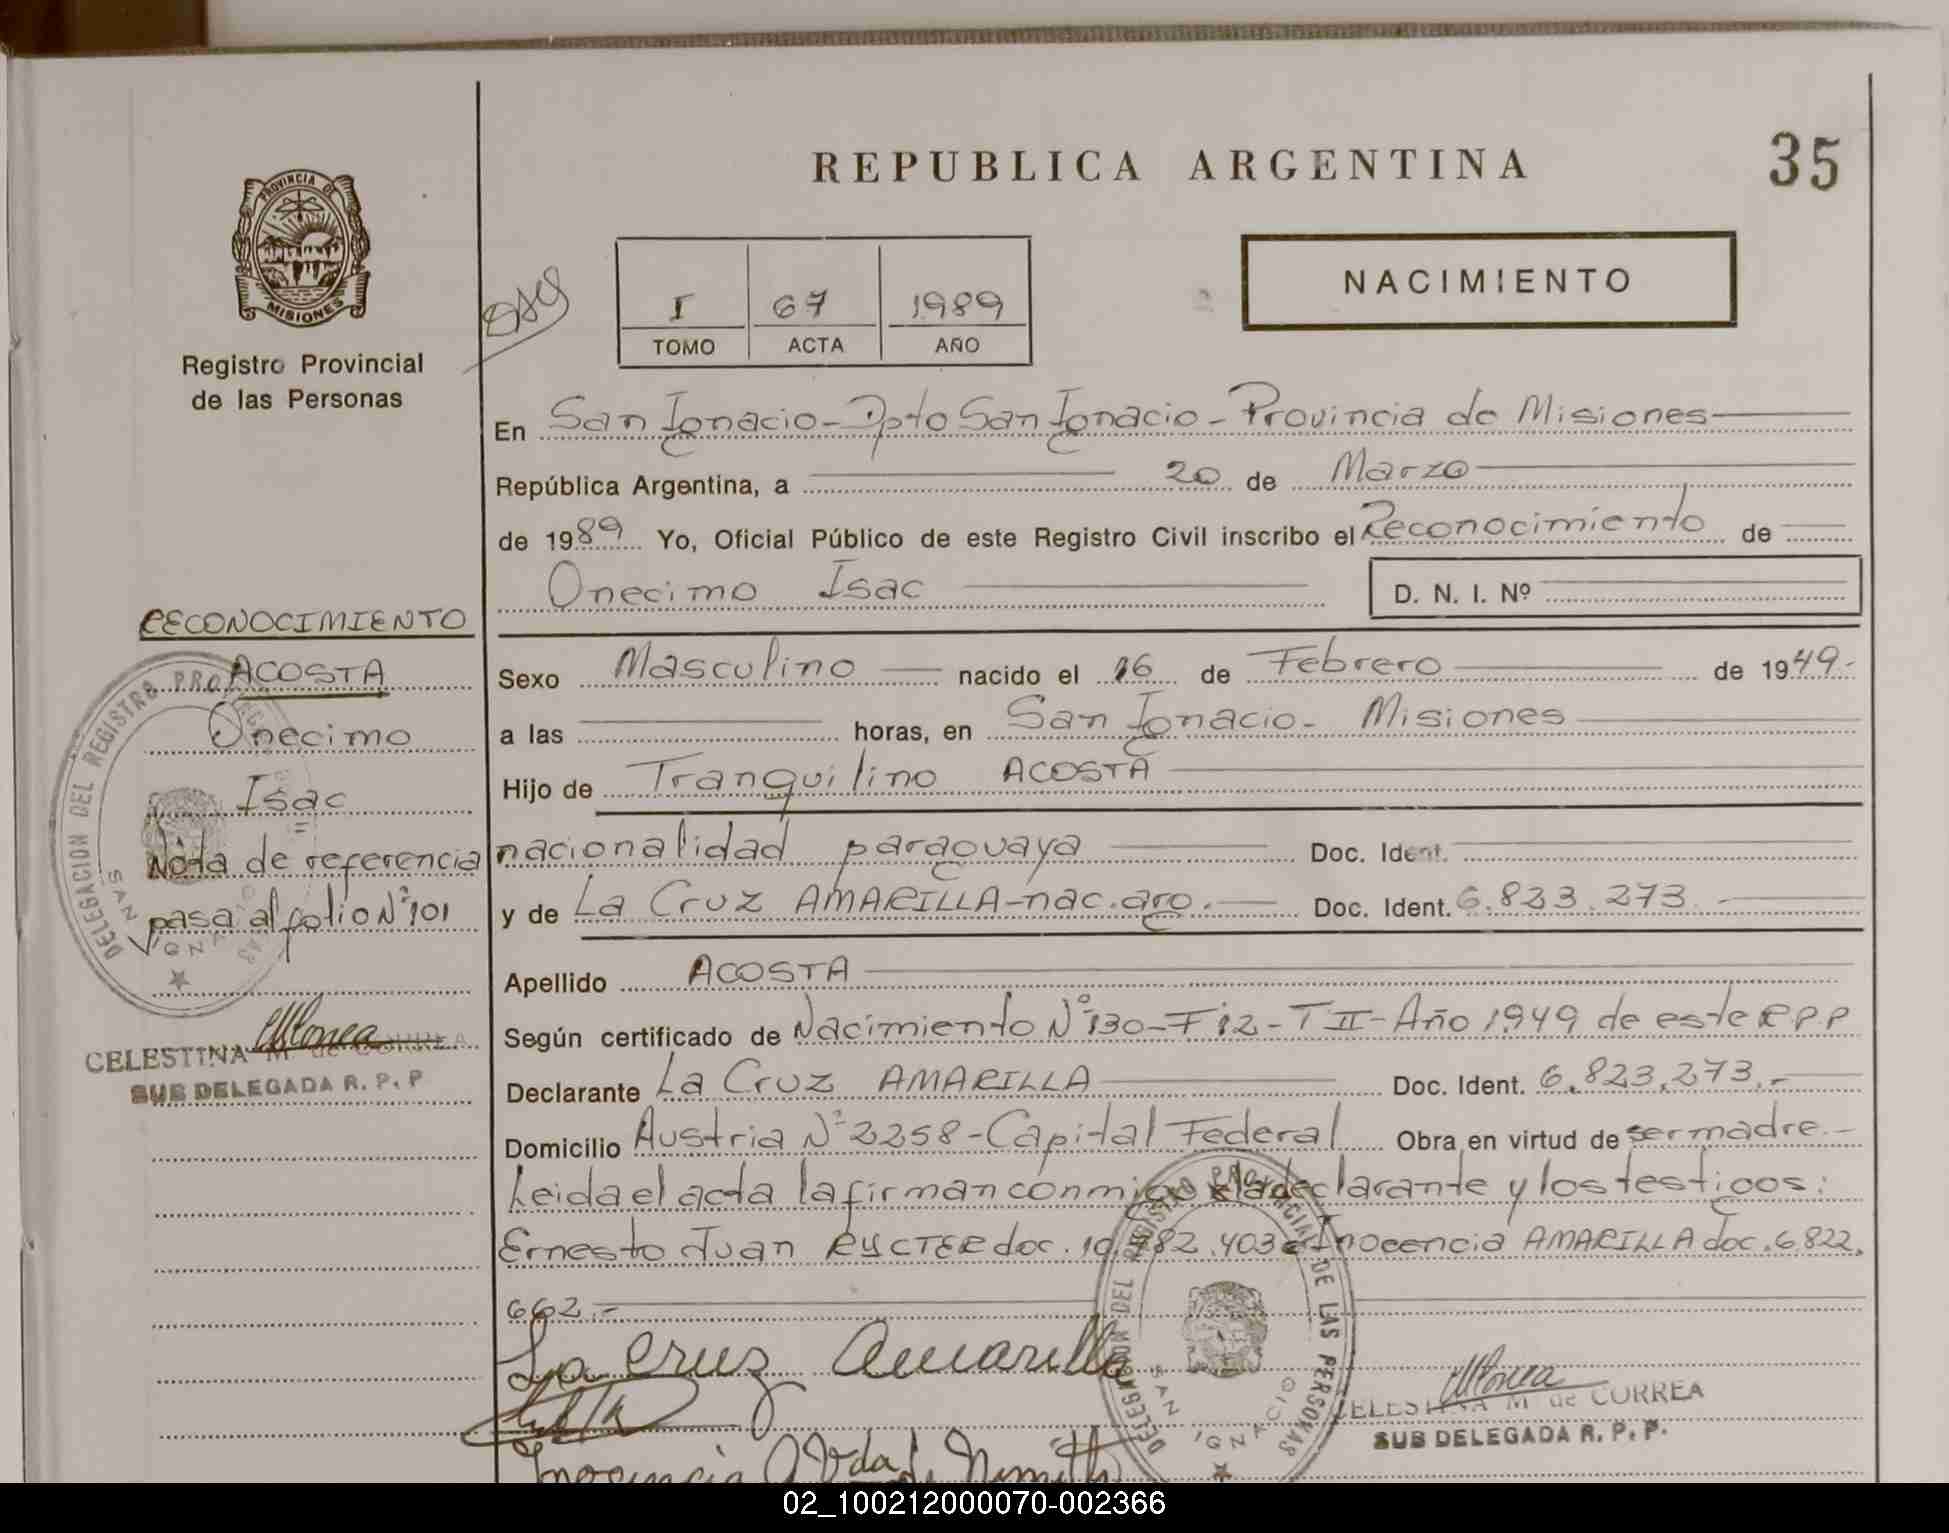 REPUBLICA ARGENTINA
35
PROVINCIA DE
MISIONES
Registro Provincial
de las Personas
I 67 1989
TOMO ACTA AÑO
NACIMIENTO
En San Ignacio-Dpto San Ignacio-Provincia de Misiones
República Argentina, a 20 de Marzo
de 1989 Yo, Oficial Público de este Registro Civil inscribo el Reconocimiento de
Onecimo Isac
D. N. I. Nº
RECONOCIMIENTO
ACOSTA
Onecimo
Isac
Nota de referencia
pasa al folio Nº101
CELESTINA M de CORREA
SUB DELEGADA R. P. P
DELEGACION DEL REGISTRO
SAN IGNACIO
Sexo Masculino nacido el 16 de Febrero de 1949.-
a las horas, en San Ignacio- Misiones
Hijo de Tranquilino ACOSTA
nacionalidad paraguaya Doc. Ident.
y de La Cruz AMARILLA-nac.arg.- Doc. Ident. 6.823.273.-
Apellido ACOSTA
Según certificado de Nacimiento Nº130-F12-TII-Año 1949 de este R P P
Declarante La Cruz AMARILLA Doc. Ident. 6.823.273.-
Domicilio Austria Nº2258-Capital Federal Obra en virtud de ser madre.-
Leida el acta la firman conmigo la declarante y los testigos:
Ernesto Juan RYCTER doc. 10.782.403 e Inocencia AMARILLA doc.6.822.
662.-
La Cruz Amarilla
DELEGACION DEL REGISTRO PROVINCIAL DE LAS PERSONAS
SAN IGNACIO
CELESTINA M de CORREA
SUB DELEGADA R. P. P.
Inocencia A Vda de
02_100212000070-002366